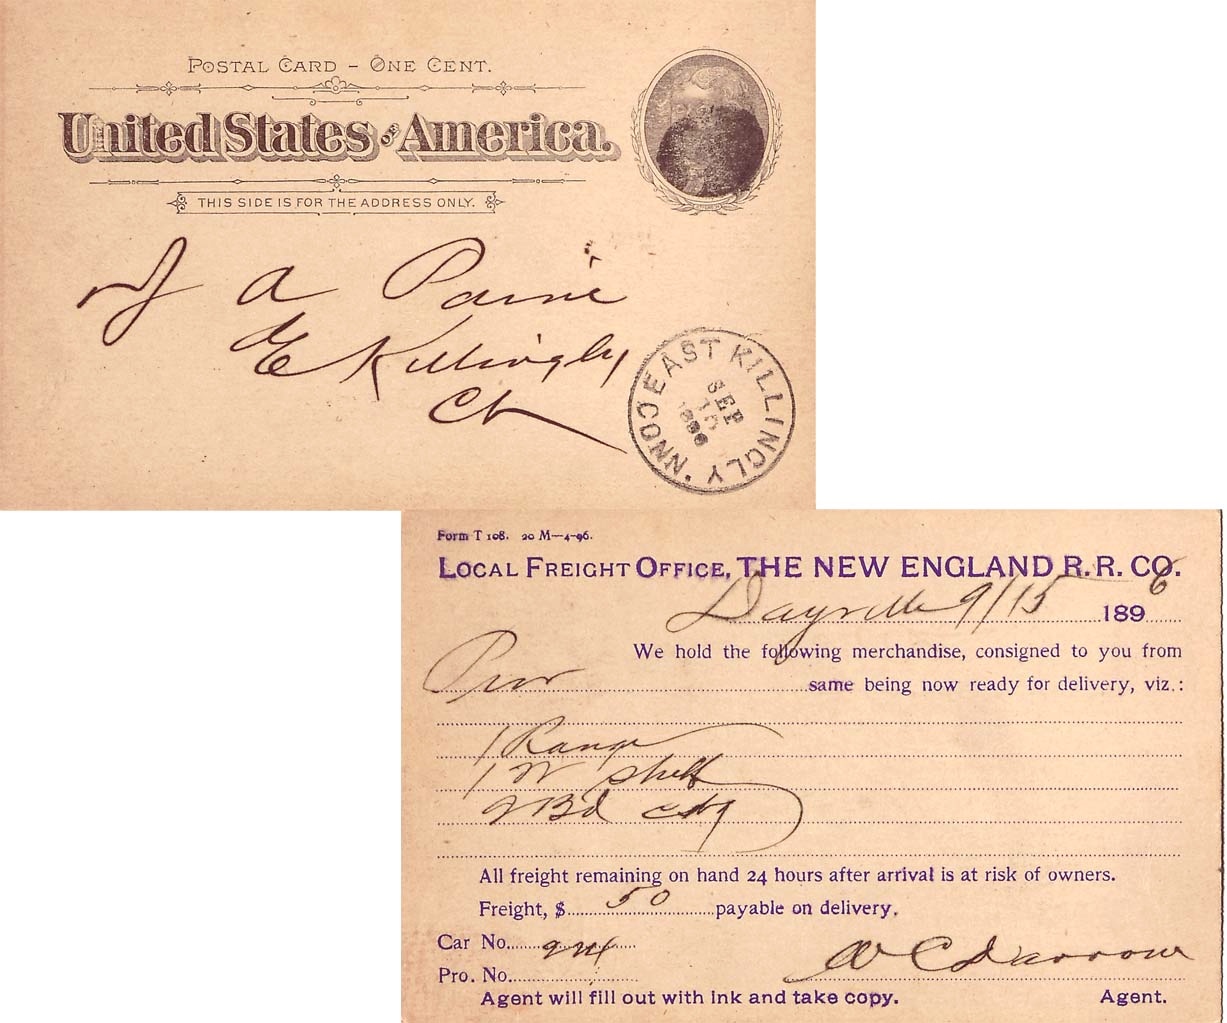 POSTAL CARD - ONE CENT.
United States OF America.
THIS SIDE IS FOR THE ADDRESS ONLY.
J A Paine
E Killingly
Ct
EAST KILLINGLY CONN.
SEP
15
1896
Form T 108. 20 M—4-96.
LOCAL FREIGHT OFFICE, THE NEW ENGLAND R. R. CO.
Dayville 9/15 1896
We hold the following merchandise, consigned to you from
Prov same being now ready for delivery, viz.:
1 Range
1 W Shelf
2 Bd Ctg
All freight remaining on hand 24 hours after arrival is at risk of owners.
Freight, $ 50 payable on delivery.
Car No.
W C Darrow
Pro. No.
Agent will fill out with ink and take copy. Agent.